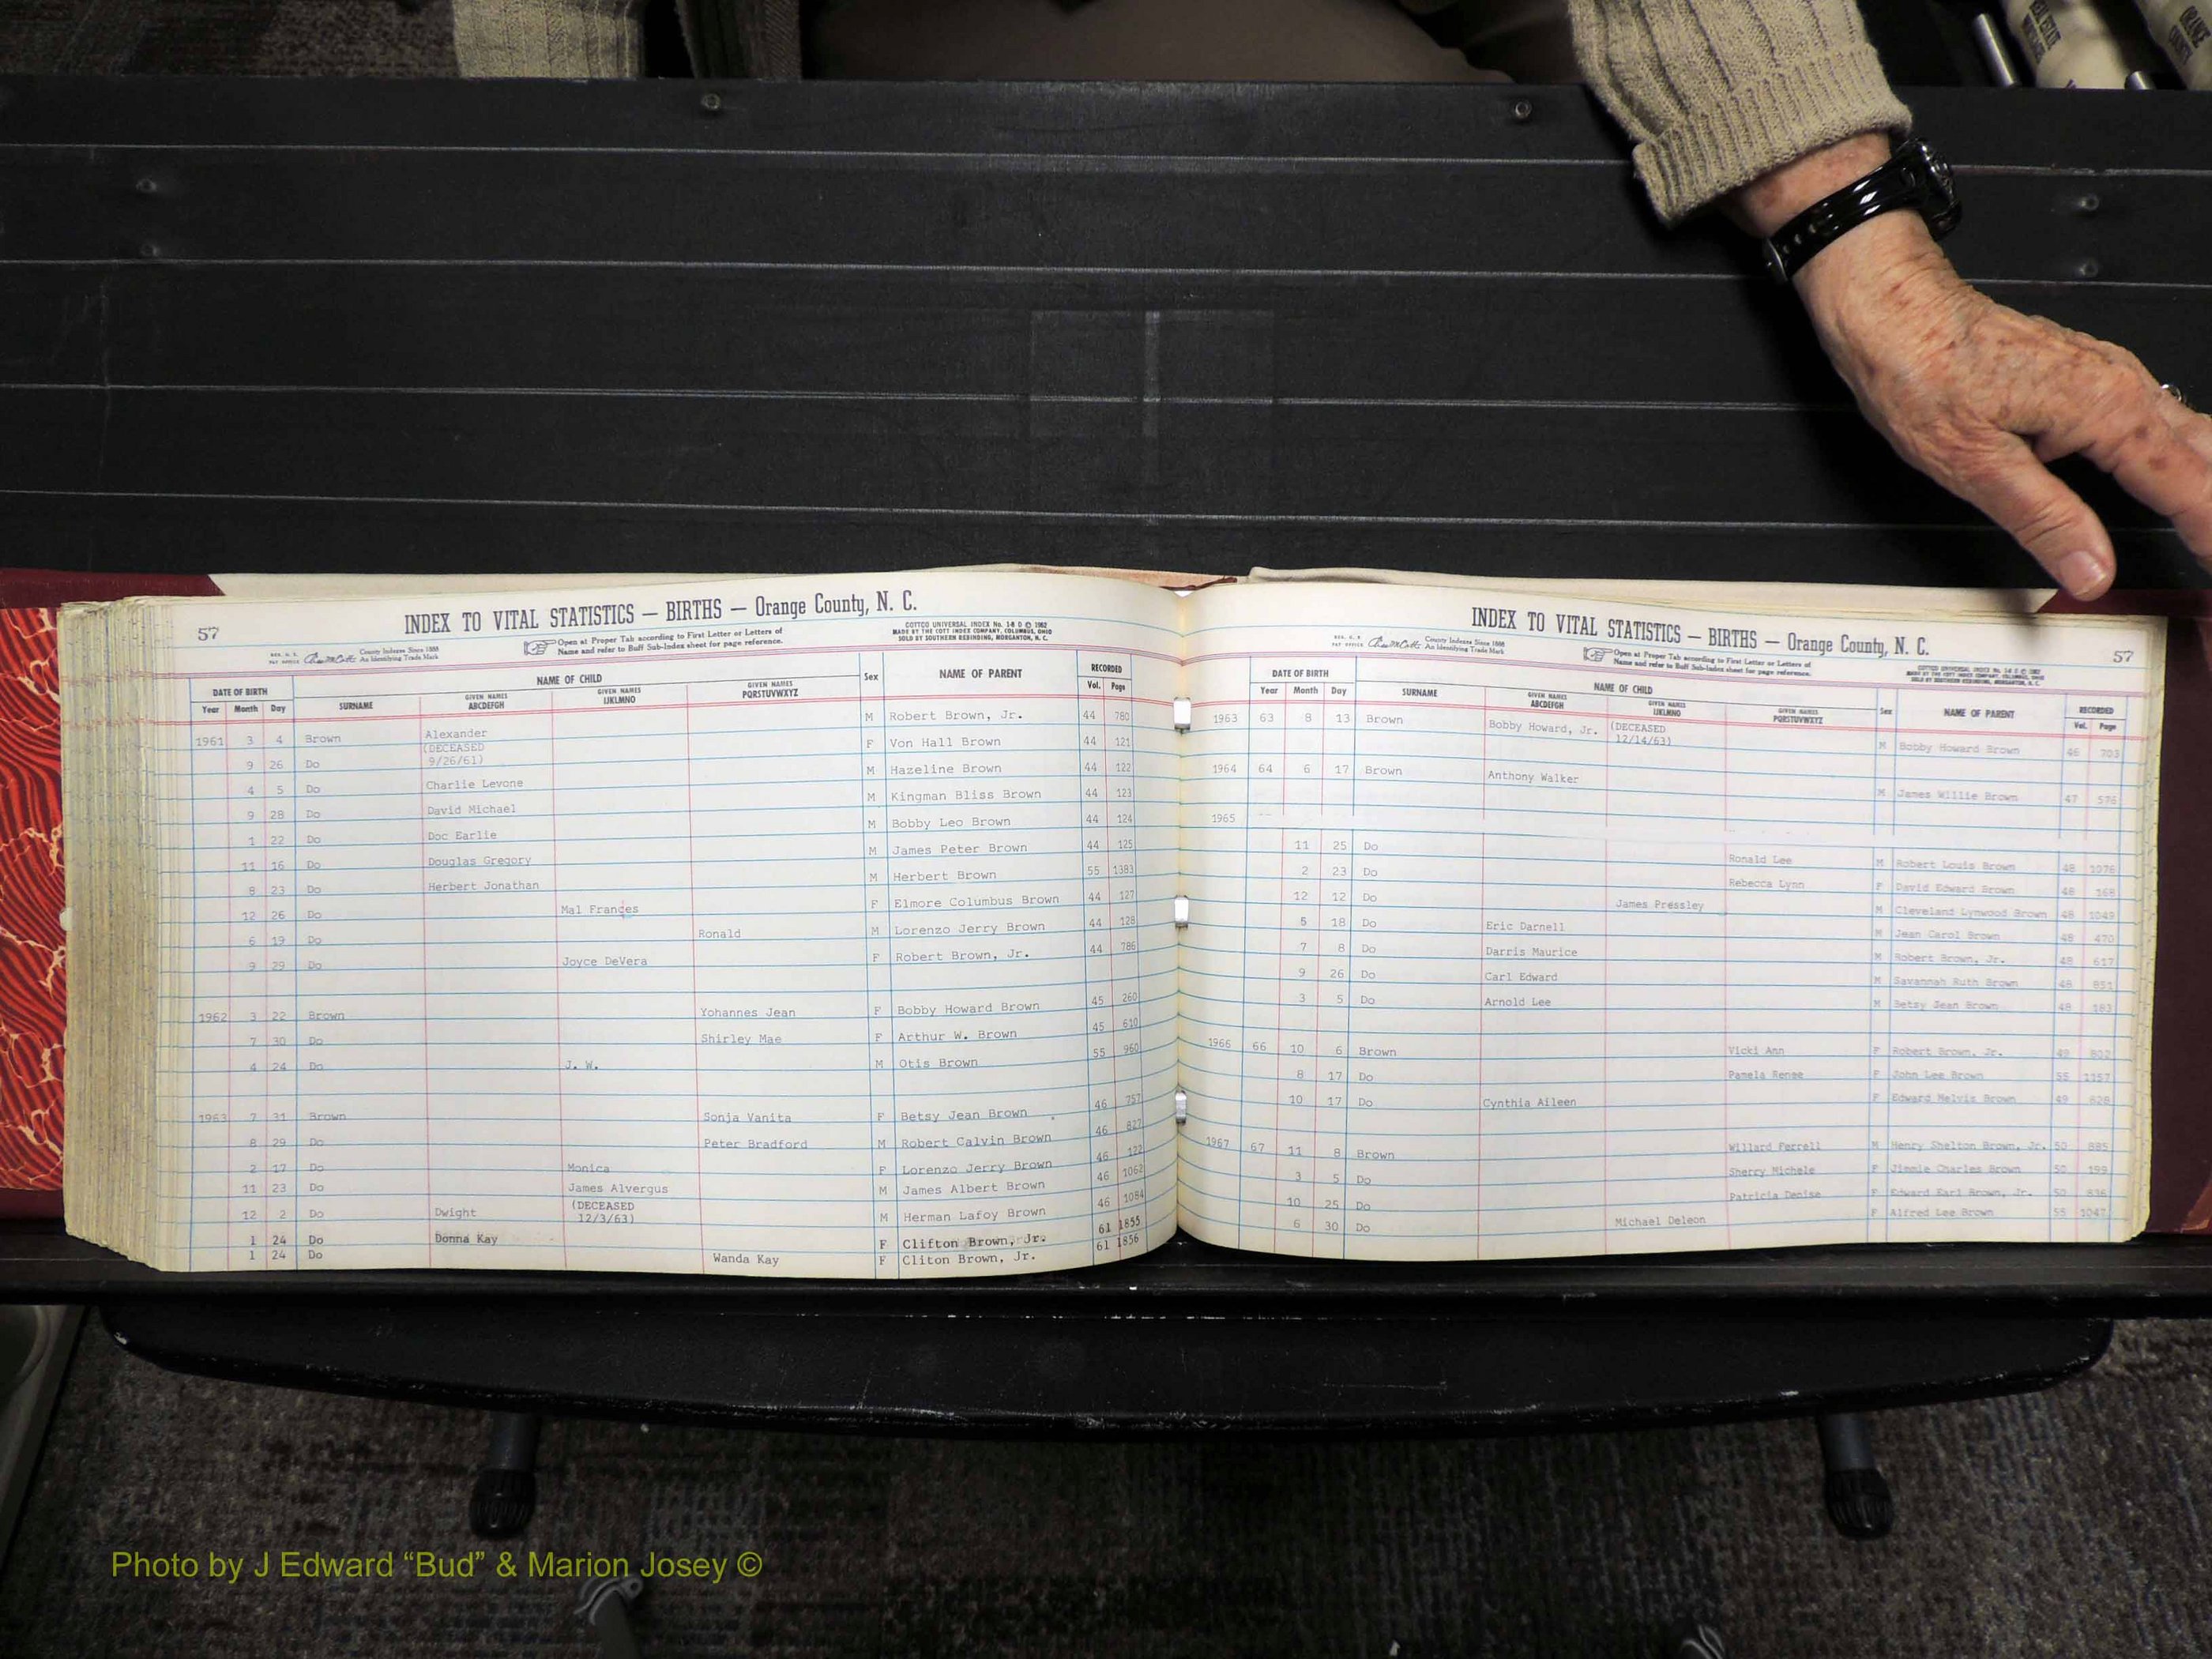 57
INDEX TO VITAL STATISTICS — BIRTHS — Orange County, N. C.
County Indexes Since 1888
An Identifying Trade Mark
Open at Proper Tab according to First Letter or Letters of
Name and refer to Buff Sub-Index sheet for page reference.
COTTCO UNIVERSAL INDEX No. 1-8 © 1962
MADE BY THE COTT INDEX COMPANY, COLUMBUS, OHIO
SOLD BY SOUTHERN REBINDING, MORGANTON, N. C.
DATE OF BIRTH NAME OF CHILD Sex NAME OF PARENT RECORDED
Year Month Day SURNAME GIVEN NAMES ABCDEFGH GIVEN NAMES IJKLMNO GIVEN NAMES PQRSTUVWXYZ Vol. Page
1961 3 4 Brown Alexander M Robert Brown, Jr. 44 780
9 26 Do (DECEASED 9/26/61) F Von Hall Brown 44 121
4 5 Do Charlie Levone M Hazeline Brown 44 122
9 28 Do David Michael M Kingman Bliss Brown 44 123
1 22 Do Doc Earlie M Bobby Leo Brown 44 124
11 16 Do Douglas Gregory M James Peter Brown 44 125
8 23 Do Herbert Jonathan M Herbert Brown 55 1383
12 26 Do Mal Frances F Elmore Columbus Brown 44 127
6 19 Do Ronald M Lorenzo Jerry Brown 44 128
9 29 Do Joyce DeVera F Robert Brown, Jr. 44 786
1962 3 22 Brown Yohannes Jean F Bobby Howard Brown 45 260
7 30 Do Shirley Mae F Arthur W. Brown 45 610
4 24 Do J. W. M Otis Brown 55 960
1963 7 31 Brown Sonja Vanita F Betsy Jean Brown 46 757
8 29 Do Peter Bradford M Robert Calvin Brown 46 827
2 17 Do Monica F Lorenzo Jerry Brown 46 122
11 23 Do James Alvergus M James Albert Brown 46 1062
12 2 Do Dwight (DECEASED 12/3/63) M Herman Lafoy Brown 46 1084
1 24 Do Donna Kay F Clifton Brown, Jr. 61 1855
1 24 Do Wanda Kay F Cliton Brown, Jr. 61 1856
INDEX TO VITAL STATISTICS — BIRTHS — Orange County, N. C.
57
County Indexes Since 1888
An Identifying Trade Mark
Open at Proper Tab according to First Letter or Letters of
Name and refer to Buff Sub-Index sheet for page reference.
DATE OF BIRTH NAME OF CHILD Sex NAME OF PARENT RECORDED
Year Month Day SURNAME GIVEN NAMES ABCDEFGH GIVEN NAMES IJKLMNO GIVEN NAMES PQRSTUVWXYZ Vol. Page
1963 63 8 13 Brown Bobby Howard, Jr. (DECEASED 12/14/63) M Bobby Howard Brown 46 703
1964 64 6 17 Brown Anthony Walker M James Willie Brown 47 576
1965
11 25 Do Ronald Lee M Robert Louis Brown 48 1076
2 23 Do Rebecca Lynn F David Edward Brown 48 168
12 12 Do James Pressley M Cleveland Lynwood Brown 48 1049
5 18 Do Eric Darnell M Jean Carol Brown 48 470
7 8 Do Darris Maurice M Robert Brown, Jr. 48 617
9 26 Do Carl Edward M Savannah Ruth Brown 48 851
3 5 Do Arnold Lee M Betsy Jean Brown 48 183
1966 66 10 6 Brown Vicki Ann F Robert Brown, Jr. 49 802
8 17 Do Pamela Renee F John Lee Brown 55 1157
10 17 Do Cynthia Aileen F Edward Melvin Brown 49 828
1967 67 11 8 Brown Willard Ferrell M Henry Shelton Brown, Jr. 50 885
3 5 Do Sherry Michele F Jimmie Charles Brown 50 199
10 25 Do Patricia Denise F Edward Earl Brown, Jr. 50 836
6 30 Do Michael Deleon F Alfred Lee Brown 55 1047
Photo by J Edward “Bud” & Marion Josey ©